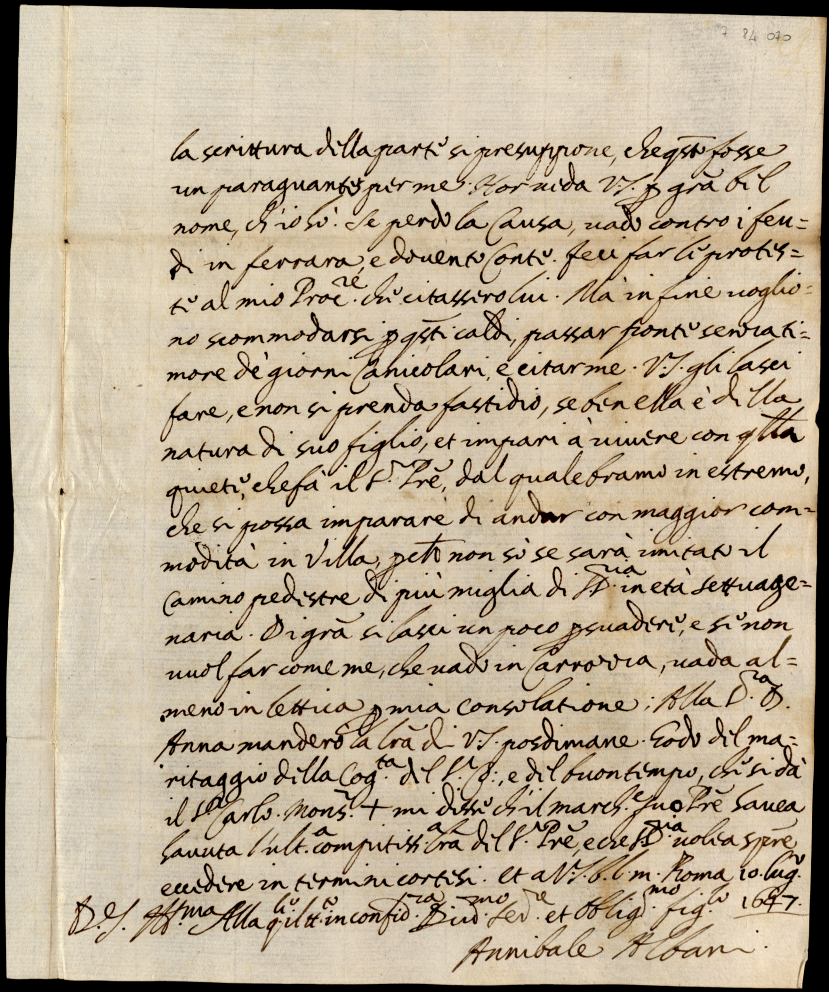 7 84 070
la scrittura della parte si presuppone, che qsto fosse
un paraguanto per me. Hor veda V.S. p grã bel
nome, ch'io hò. Se perdo la Causa, vado contro i feu=
di in ferrara, e dovento Conte. feci far le protes=
te al mio Procre. che citassero lui. Mà in fine voglio=
no scommodarsi p qsti caldi, passar ponte senza ti=
more de' giorni Canicolari, e citarme. V.S. gli lasci
fare, e non si prenda fastidio, se ben ella è della
natura di suo figlio, et impari à vivere con qlla
quiete, che fà il Sr. Prẽ, dal quale bramo in estremo,
che si possa imparare di andar con maggior com=
modità in Villa, non sò se sarà imitato il
Camino pedestre di più miglia di in età settuage=
naria. Di grã si lasci un poco psuadere, e se non
vuol far come me, che vado in Carrozza, vada al=
meno in lettica p mia consolatione; Alla Sra. D.
Anna manderò la lrã di V.S. posdimane. Godo del ma=
ritaggio della Cogta. del Sr. , e del buon tempo, che si dà
il Sr. Carlo. Monsr. + mi disse che il marche. suo Prẽ havea
havuta l'ulta. compitissa. lrã del Sr. Prẽ, e che volea spre
eccedere in termini cortesi. et a V.S. b. l. m. Roma 10. lugo.
D. S. Illma Alla qle in confidza. Divmo. Serre. et Obligmo. figlo. 1647.
Annibale Albani.